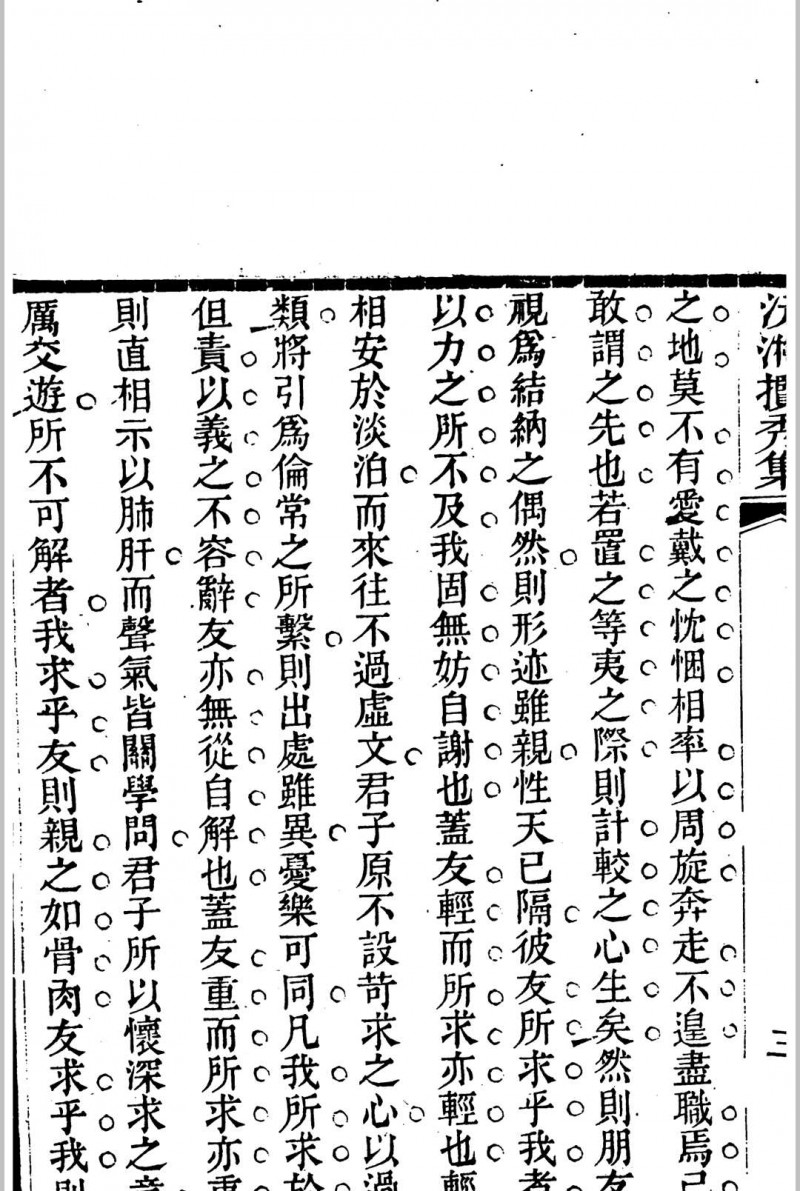 沅湘攬秀集
三
之地莫不有愛戴之忱悃相率以周旋奔走不遑盡職焉己
敢謂之先也若置之等夷之際則計較之心生矣然則朋友
視爲結納之偶然則形迹雖親性天已隔彼友所求乎我者
以力之所不及我固無妨自謝也蓋友輕而所求亦輕也輕
相安於淡泊而來往不過虛文君子原不設苛求之心以過
類將引爲倫常之所繫則出處雖異憂樂可同凡我所求於
但責以義之不容辭友亦無從自解也蓋友重而所求亦重
則直相示以肺肝而聲氣皆關學問君子所以懷深求之意
厲交遊所不可解者我求乎友則親之如骨肉友求乎我則